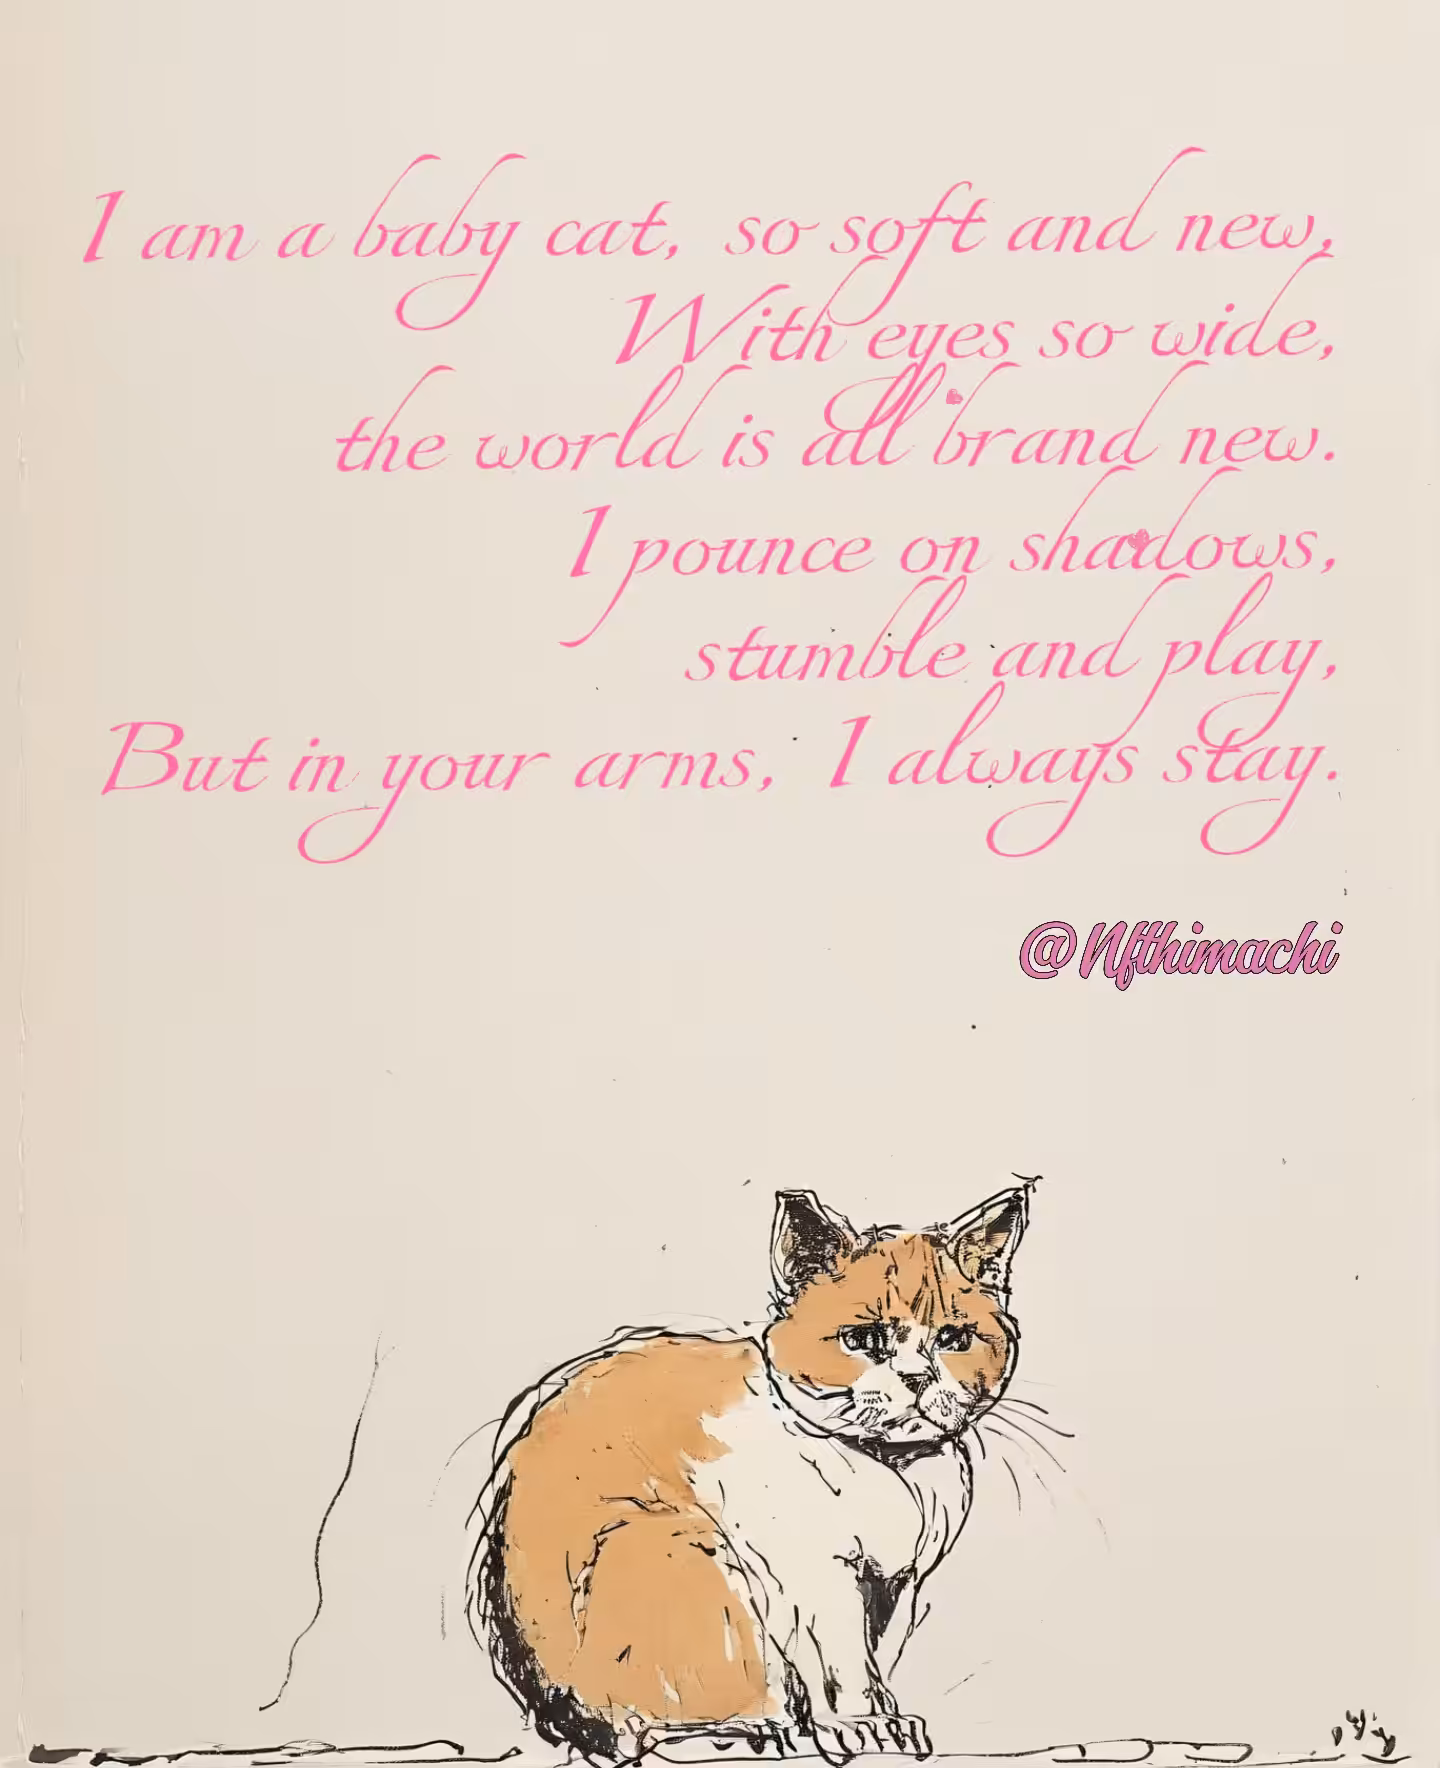 I am a baby cat, so soft and new,
With eyes so wide,
the world is all brand new.
I pounce on shadows,
stumble and play,
But in your arms, I always stay.
@Nfthimachi